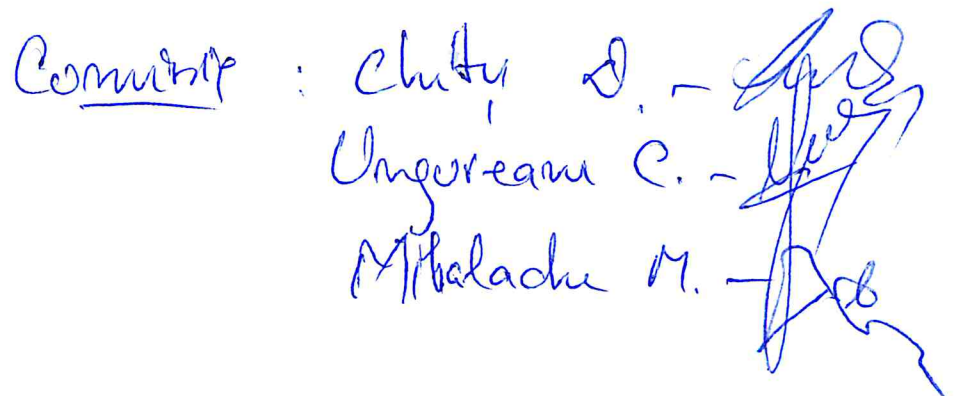 Comisie : Chițu D. -
Ungureanu C. -
Mihalache M. -